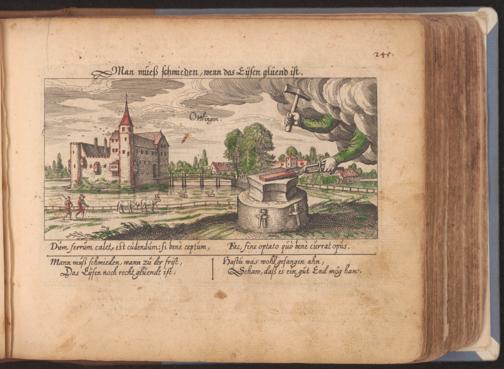 245.
Man mueß schmieden, wenn das Eijsen glüend ist.
Dum ferrum calet, est cudendum; si benè ceptum,
Fac, fine optato quò benè currat opus.
Mann muß schmieden, wann zu der frist,
Das Eijsen noch recht glüendt ist.
Hastu was wohl gefangen ahn,
Schaw, daß es ein gut End mög han.